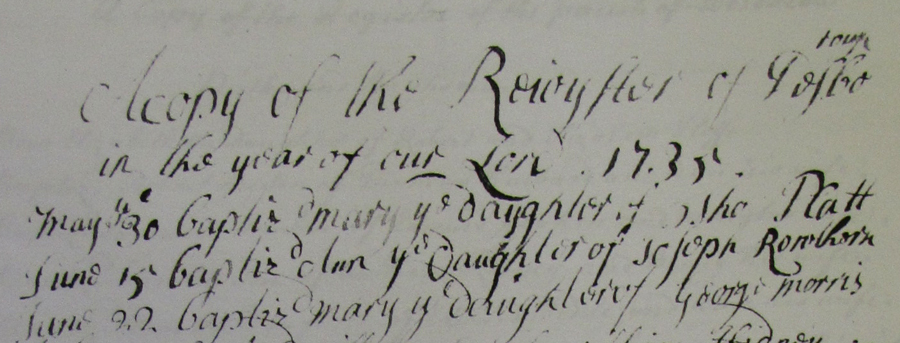 A copy of the Reigyster of Desborough
in the year of our Lord . 17.35 .
May ye 30 baptizd mary ye daughter of Platt
June 15 baptizd Ann ye Daughter of Joseph Rowthorn
June 22 baptizd mary ye daughter of George morris